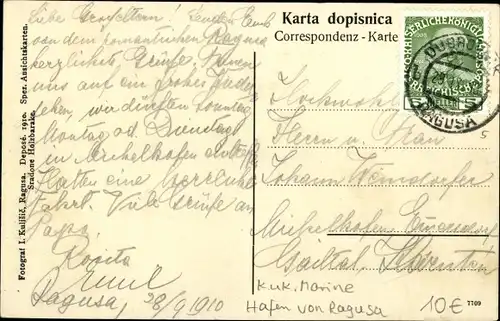 Karta dopisnica
Correspondenz - Karte
Liebe Großeltern! Senden Euch
von dem romantischen Ragusa
herzlichste Grüße. Freuen
uns auf ein frohes Wieder
sehen, wir dürften Sonntag
Montag od. Dienstag
in Michelhofen
Hatten eine herrliche
Fahrt. Viele Grüße an
Papa.
Rosita
Emil
Ragusa, 28/9 1910
Fotograf I. Kuljišić, Ragusa. Deposé. 1910. Spez. Ansichtskarten.
Sradone Holzbaracke.
KAISERLICHE KÖNIGLICHE
5 HELLER 5
DUBROVNIK
RAGUSA
Hochwohl
Herrn u. Frau
Johann
Michelhofen
Gailtal, Kärnten
5
K.u.K. Marine
Hafen von Ragusa
10€
7709